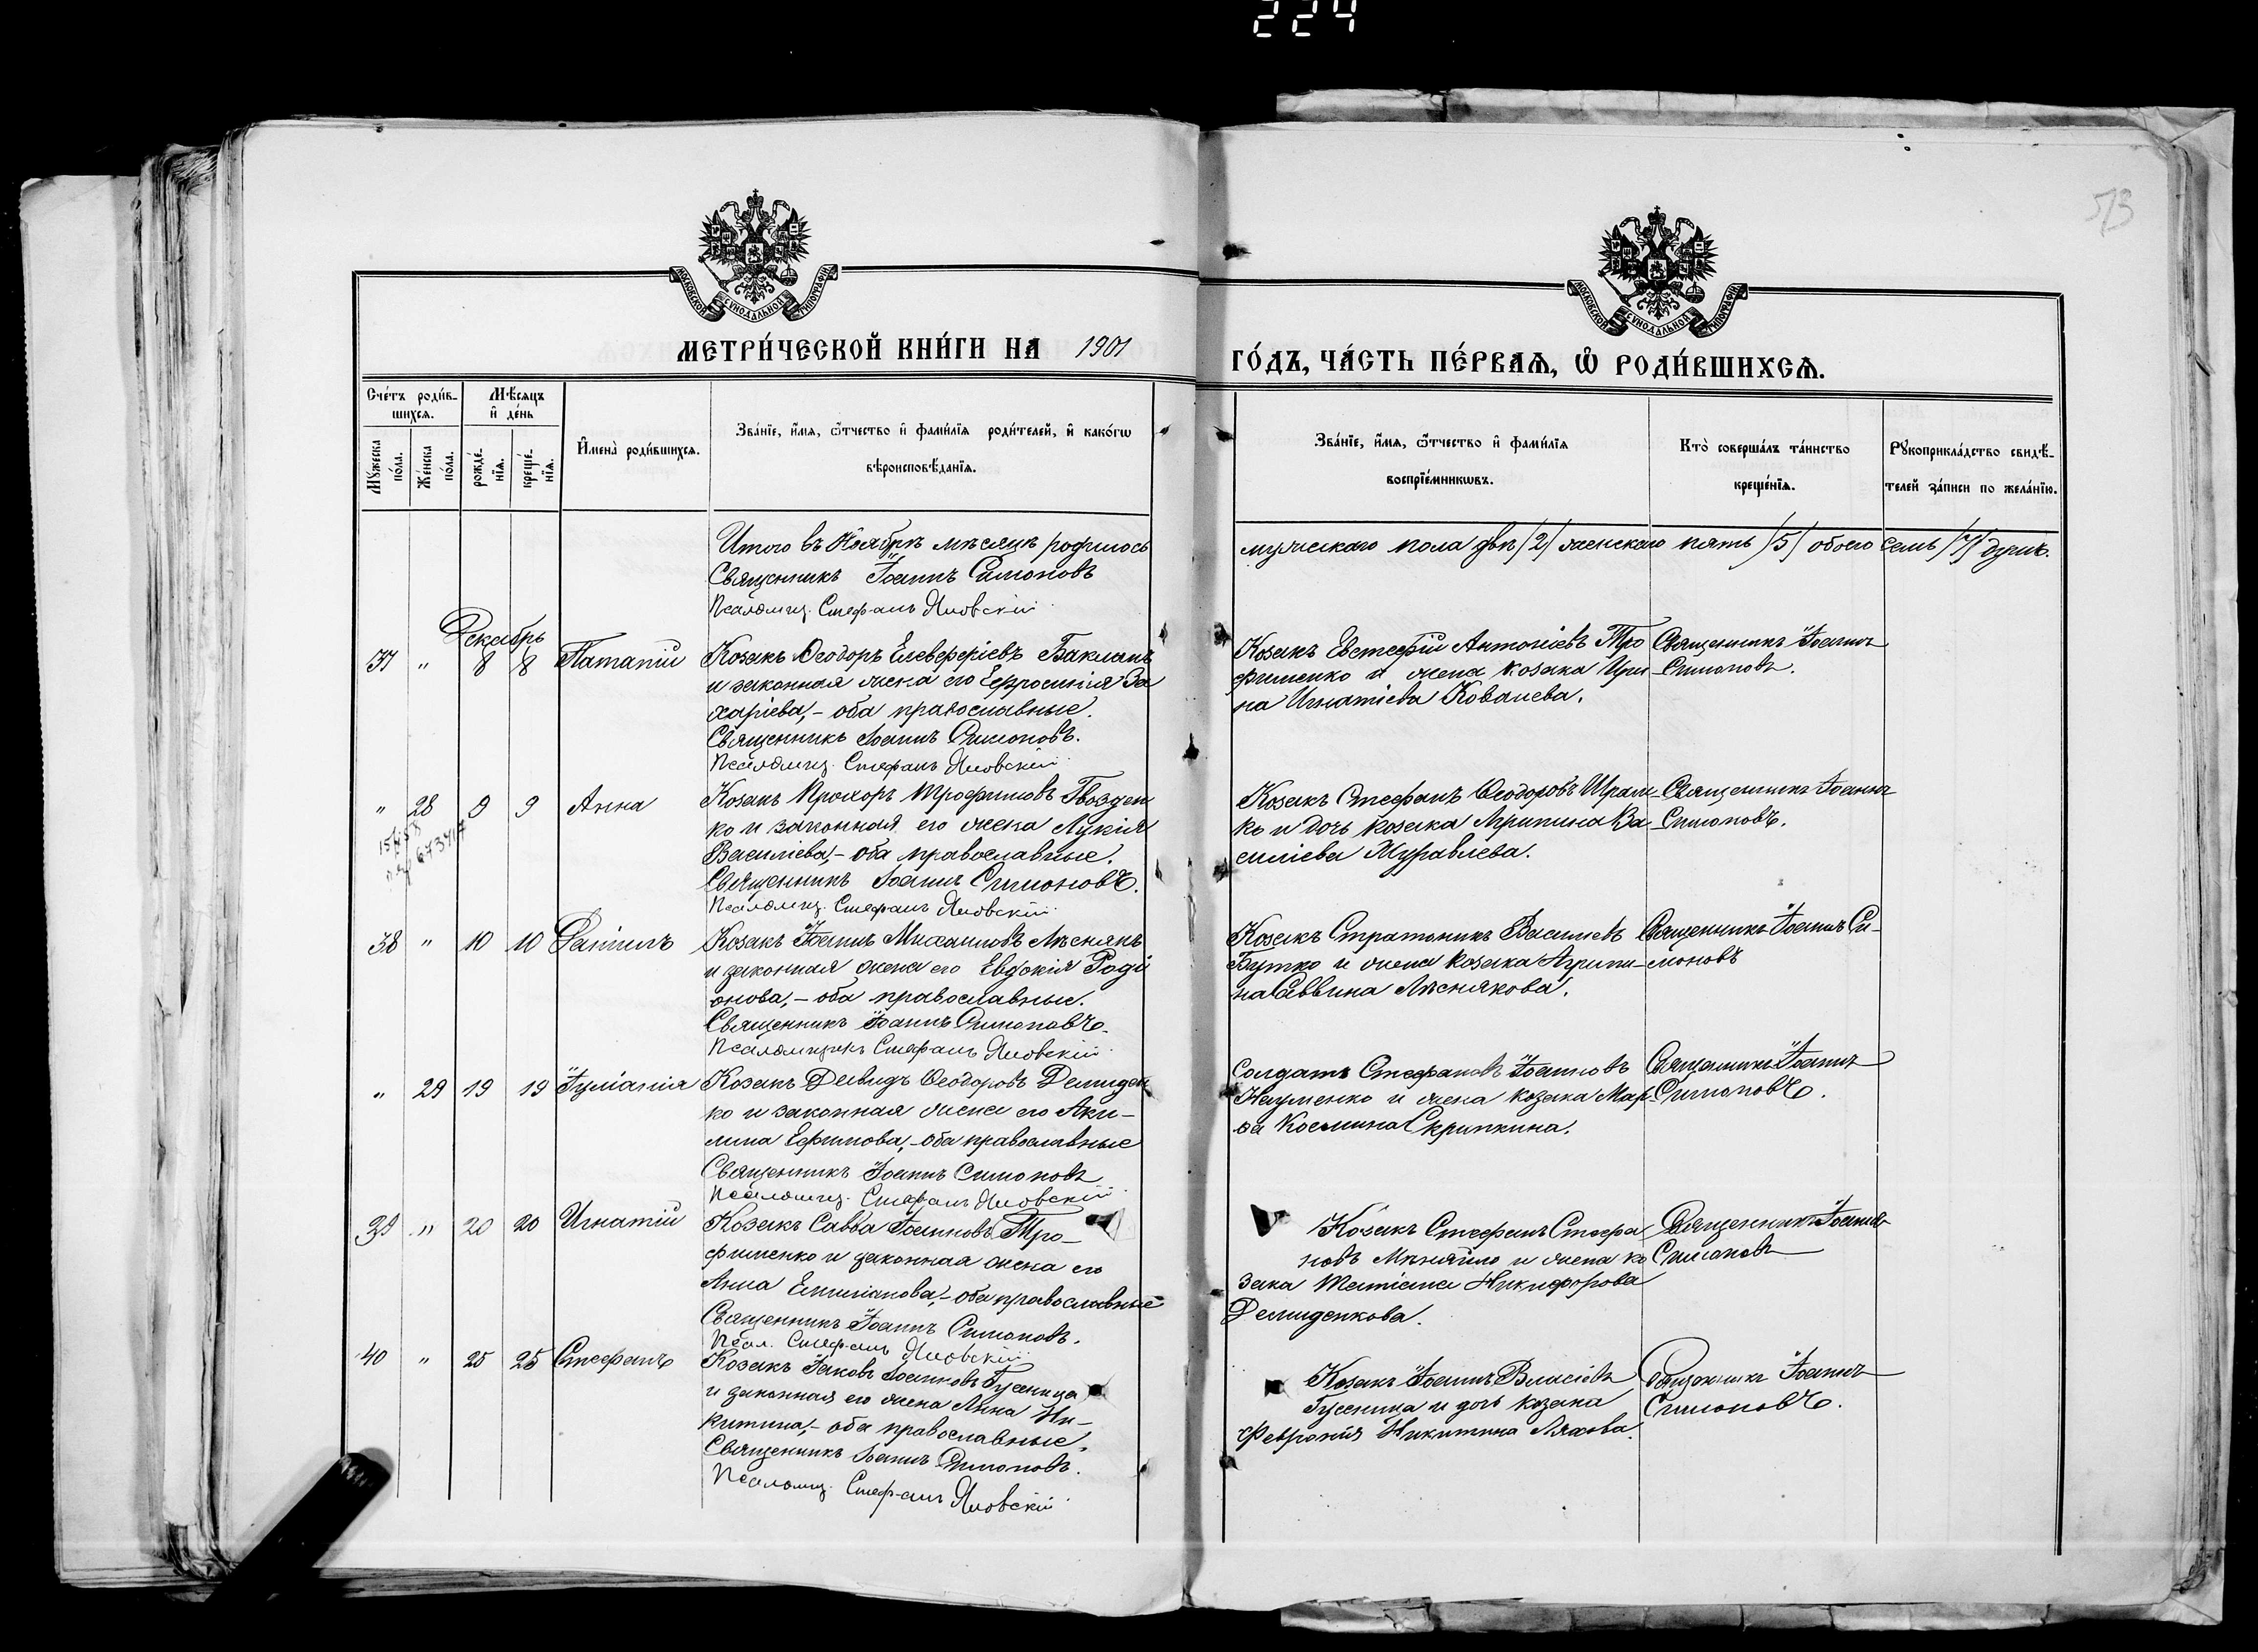 224
53
МОСКОВСКОЙ СУНОДАЛЬНОЙ ТИПОГРАФІИ
МОСКОВСКОЙ СУНОДАЛЬНОЙ ТИПОГРАФІИ
МЕТРИ́ЧЕСКОЙ КНИ́ГИ НА 1901
ГО́ДЪ, ЧА́СТЬ ПЕ́РВАѦ, Ѡ҆ РОДИ́ВШИХСѦ.
Сче́тъ роди́в-
шихсѧ.
Мѣ́сѧцъ
и҆ де́нь
Мꙋ́жеска
по́ла.
Же́нска
по́ла.
рожде́-
нїѧ.
креще́-
нїѧ.
И҆мена̀ роди́вшихсѧ.
Зва́нїе, и҆́мѧ, ѻ҆́тчество и҆ фами́лїѧ роди́телей, и҆ како́гѡ
вѣроисповѣ́данїѧ.
Зва́нїе, и҆́мѧ, ѻ҆́тчество и҆ фами́лїѧ
воспрїе́мникѡвъ.
Кто̀ соверша́лъ та́инство
креще́нїѧ.
Рꙋкоприкла́дство свидѣ́-
телей за́писи по жела́нїю.
Итого въ Ноябрѣ мѣсяцѣ родилось
мужескаго пола два /2/ женскаго пять /5/ обоего семь /7/ душъ.
Священникъ Іоаннъ Симоновъ
Псаломщ. Стефанъ Яновскій
Декабрь
37 " 8 8 Патапій
Козакъ Ѳеодоръ Елевферіевъ Бакланъ
и законная жена его Ефросинія За
харіева, – оба православные.
Священникъ Іоаннъ Симоновъ.
Псаломщ. Стефанъ Яновскій
Козакъ Евстафій Антоніевъ Тро
фименко и жена козака Ири
на Игнатіева Ковалева.
Священникъ Іоаннъ
Симоновъ.
" 28 9 9 Анна
Козакъ Прохоръ Трофимовъ Гвозден
ко и законная его жена Лукія
Василіева, – оба православные.
Священникъ Іоаннъ Симоновъ.
Псаломщ. Стефанъ Яновскій
Козакъ Стефанъ Ѳеодоровъ Шрам-
ко и дочь козака Агрипина Ва
силіева Муравлева.
Священникъ Іоаннъ
Симоновъ.
38 " 10 10 Даніилъ
Козакъ Іоаннъ Михаиловъ Лѣснякъ
и законная жена его Евдокія Роді
онова, – оба православные.
Священникъ Іоаннъ Симоновъ.
Псаломщикъ Стефанъ Яновскій
Козакъ Стратоникъ Василіевъ
Бутко и жена козака Агрипи-
на Саввина Лѣснякова.
Священникъ Іоаннъ Си-
моновъ
" 29 19 19 Іуліанія
Козакъ Давидъ Ѳеодоровъ Демиден
ко и законная жена его Аки-
лина Ефимова, – оба православные
Священникъ Іоаннъ Симоновъ
Псаломщ. Стефанъ Яновскій
Солдатъ Стефановъ Іоанновъ
Науменко и жена козака Мар-
ѳа Космина Скрипкина.
Священникъ Іоаннъ
Симоновъ.
39 " 20 20 Игнатій
Козакъ Савва Іоанновъ Тро-
фименко и законная жена его
Анна Емиліанова, – оба православные
Священникъ Іоаннъ Симоновъ.
Псал. Стефанъ Яновскій
Козакъ Стефанъ Стефа
новъ Миняйло и жена ко
зака Татіана Никифорова
Демиденкова.
Священникъ Іоаннъ
Симоновъ
40 " 25 25 Стефанъ
Козакъ Іаковъ Іоанновъ Гусеница
и законная его жена Анна Ни-
китина, – оба православные.
Священникъ Іоаннъ Симоновъ.
Псаломщ. Стефанъ Яновскій
Козакъ Іоаннъ Власіевъ
Гусеница и дочь козака
Февронія Никитина Ляхова.
Священникъ Іоаннъ
Симоновъ.